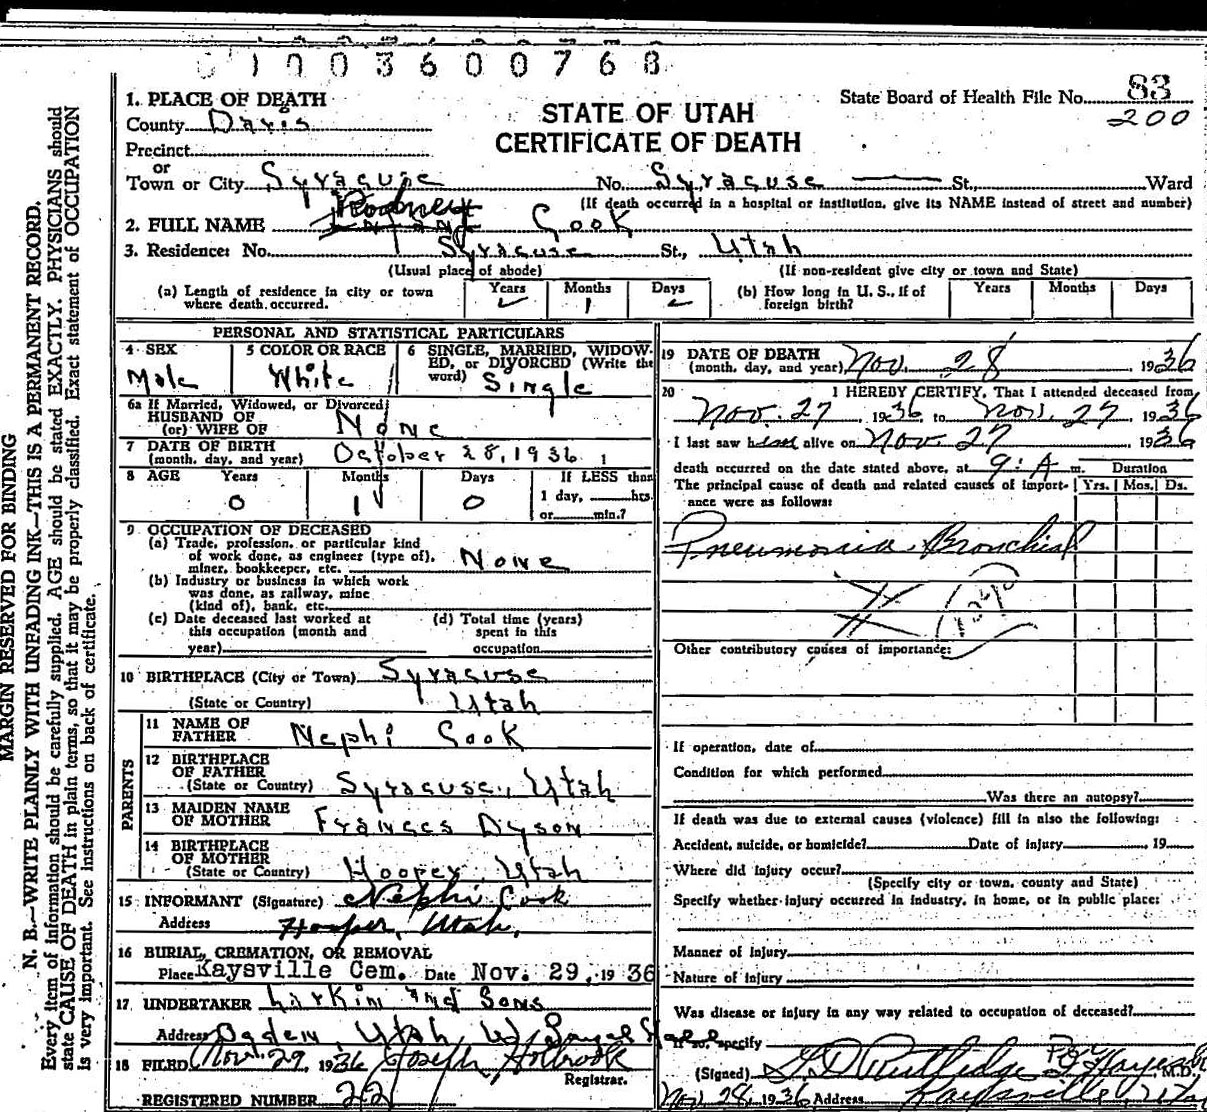 01003600768
1. PLACE OF DEATH
County Davis
Precinct
or
Town or City Syracuse No. Syracuse St., Ward
(If death occurred in a hospital or institution, give its NAME instead of street and number)
STATE OF UTAH
CERTIFICATE OF DEATH
State Board of Health File No. 83
200
Rodney
2. FULL NAME Infant Cook
3. Residence: No. Syracuse St., Utah
(Usual place of abode) (If non-resident give city or town and State)
(a) Length of residence in city or town where death occurred. Years Months 1 Days
(b) How long in U. S., if of foreign birth? Years Months Days
PERSONAL AND STATISTICAL PARTICULARS
4 SEX Male
5 COLOR OR RACE White
6 SINGLE, MARRIED, WIDOWED, OR DIVORCED (Write the word) Single
6a If Married, Widowed, or Divorced
HUSBAND OF
(or) WIFE OF None
7 DATE OF BIRTH
(month, day, and year) October 28, 1936
8 AGE Years 0 Months 1 Days 0
If LESS than
1 day, hrs.
or min.?
9 OCCUPATION OF DECEASED
(a) Trade, profession, or particular kind
of work done, as engineer (type of),
miner, bookkeeper, etc. None
(b) Industry or business in which work
was done, as railway, mine
(kind of), bank, etc.
(c) Date deceased last worked at
this occupation (month and
year)
(d) Total time (years)
spent in this
occupation
10 BIRTHPLACE (City or Town) Syracuse
(State or Country) Utah
PARENTS
11 NAME OF
FATHER Nephi Cook
12 BIRTHPLACE
OF FATHER
(State or Country) Syracuse, Utah
13 MAIDEN NAME
OF MOTHER Frances Dyson
14 BIRTHPLACE
OF MOTHER
(State or Country) Hooper, Utah
15 INFORMANT (Signature) Nephi Cook
Address Hooper, Utah.
16 BURIAL, CREMATION, OR REMOVAL
Place Kaysville Cem. Date Nov. 29, 1936
17 UNDERTAKER Larkin and Sons
Address Ogden, Utah
18 FILED Nov. 29, 1936 Joseph Holbrook
Registrar.
REGISTERED NUMBER 22
19 DATE OF DEATH
(month, day, and year) Nov. 28, 1936
20 I HEREBY CERTIFY, That I attended deceased from
Nov. 27 1936 to Nov. 27 1936
I last saw him alive on Nov 27 1936
death occurred on the date stated above, at 9: A m. Duration
The principal cause of death and related causes of importance were as follows: Yrs. Mos. Ds.
Pneumonia. Bronchial
Other contributory causes of importance:
If operation, date of
Condition for which performed
Was there an autopsy?
If death was due to external causes (violence) fill in also the following:
Accident, suicide, or homicide? Date of injury 19
Where did injury occur?
(Specify city or town, county and State)
Specify whether injury occurred in industry, in home, or in public place:
Manner of injury
Nature of injury
Was disease or injury in any way related to occupation of deceased?
If so, specify
(Signed) Rutledge M.D.
Nov. 28, 1936 Address Kaysville, Utah
MARGIN RESERVED FOR BINDING
N. B.—WRITE PLAINLY WITH UNFADING INK—THIS IS A PERMANENT RECORD.
Every item of information should be carefully supplied. AGE should be stated EXACTLY. PHYSICIANS should
state CAUSE OF DEATH in plain terms, so that it may be properly classified. Exact statement of OCCUPATION
is very important. See instructions on back of certificate.